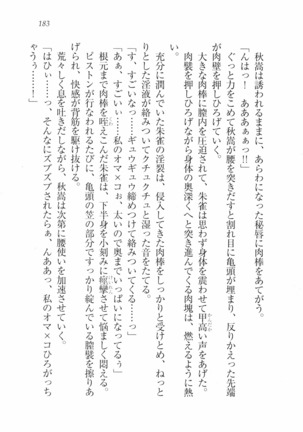 183
秋嵩は誘われるままに、あらわになった秘唇に肉棒をあてがう。
「んはっ！　あああぁぁっ!!」
ぐっと力をこめて秋嵩が腰を突きだすと割れ目に亀頭が埋まり、反りかえった先端
が肉壁を押しひろげていく。
大きな肉棒に膣内を圧迫されて、朱雀は思わず身体を震わせて甲高い声をあげた。
肉襞を押しひろげながら身体の奥深くへと突き進んでくる肉塊は、燃えるように熱
い。
充分に潤んでいた朱雀の淫裂は、侵入してきた肉棒をしっかりと受けとめ、ねっと
りとした淫液が絡みついてクチュクチュと湿った音をたてる。
「す、すごいなっ……ギュウギュウ締めつけて絡みついてくる……っ」
「あぁ、すごいぃ……私のオマ×コぉ、太いので奥までいっぱいになってるぅ」
根元まで肉棒を咥えこんだ朱雀は、下半身を小刻みに痙攣させて悩ましく悶える。
ピストンが行なわれるたびに、亀頭の笠の部分ですっかり綻んでいる膣襞を擦りあ
げられ、快感が背筋を駆け抜ける。
荒々しく息を吐きだしながら、秋嵩は次第に腰使いを加速させていく。
「はひぃ……っ、そんなにズブズブされたらぁ、んああっ、私のオマ×コひろがっち
ゃうぅ……！」